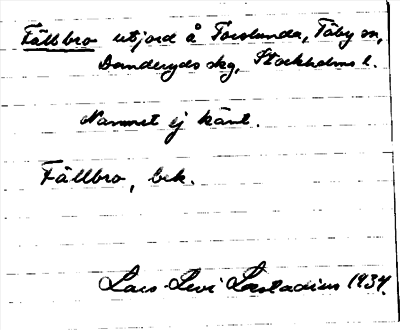 Fällbro utjord å Torslunda, Täby sn,
Danderyds skg, Stockholms l.
Namnet ej känt.
Fällbro, bek.
Lars Levi Læstadius 1934.